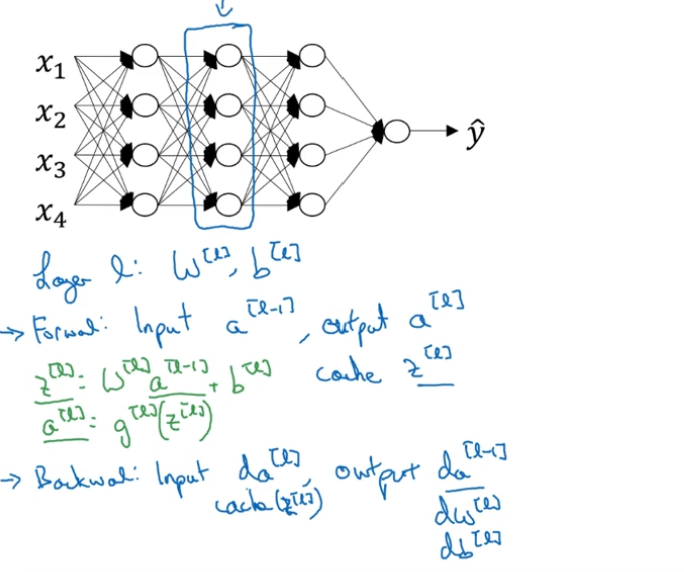 x₁
x₂
x₃
x₄
ŷ
Layer l: W^[l], b^[l]
→ Forward: Input a^[l-1], output a^[l]
z^[l]: W^[l] a^[l-1] + b^[l] cache z^[l]
a^[l]: g^[l](z^[l])
→ Backward: Input da^[l], output da^[l-1]
cache(z^[l]) dW^[l]
db^[l]